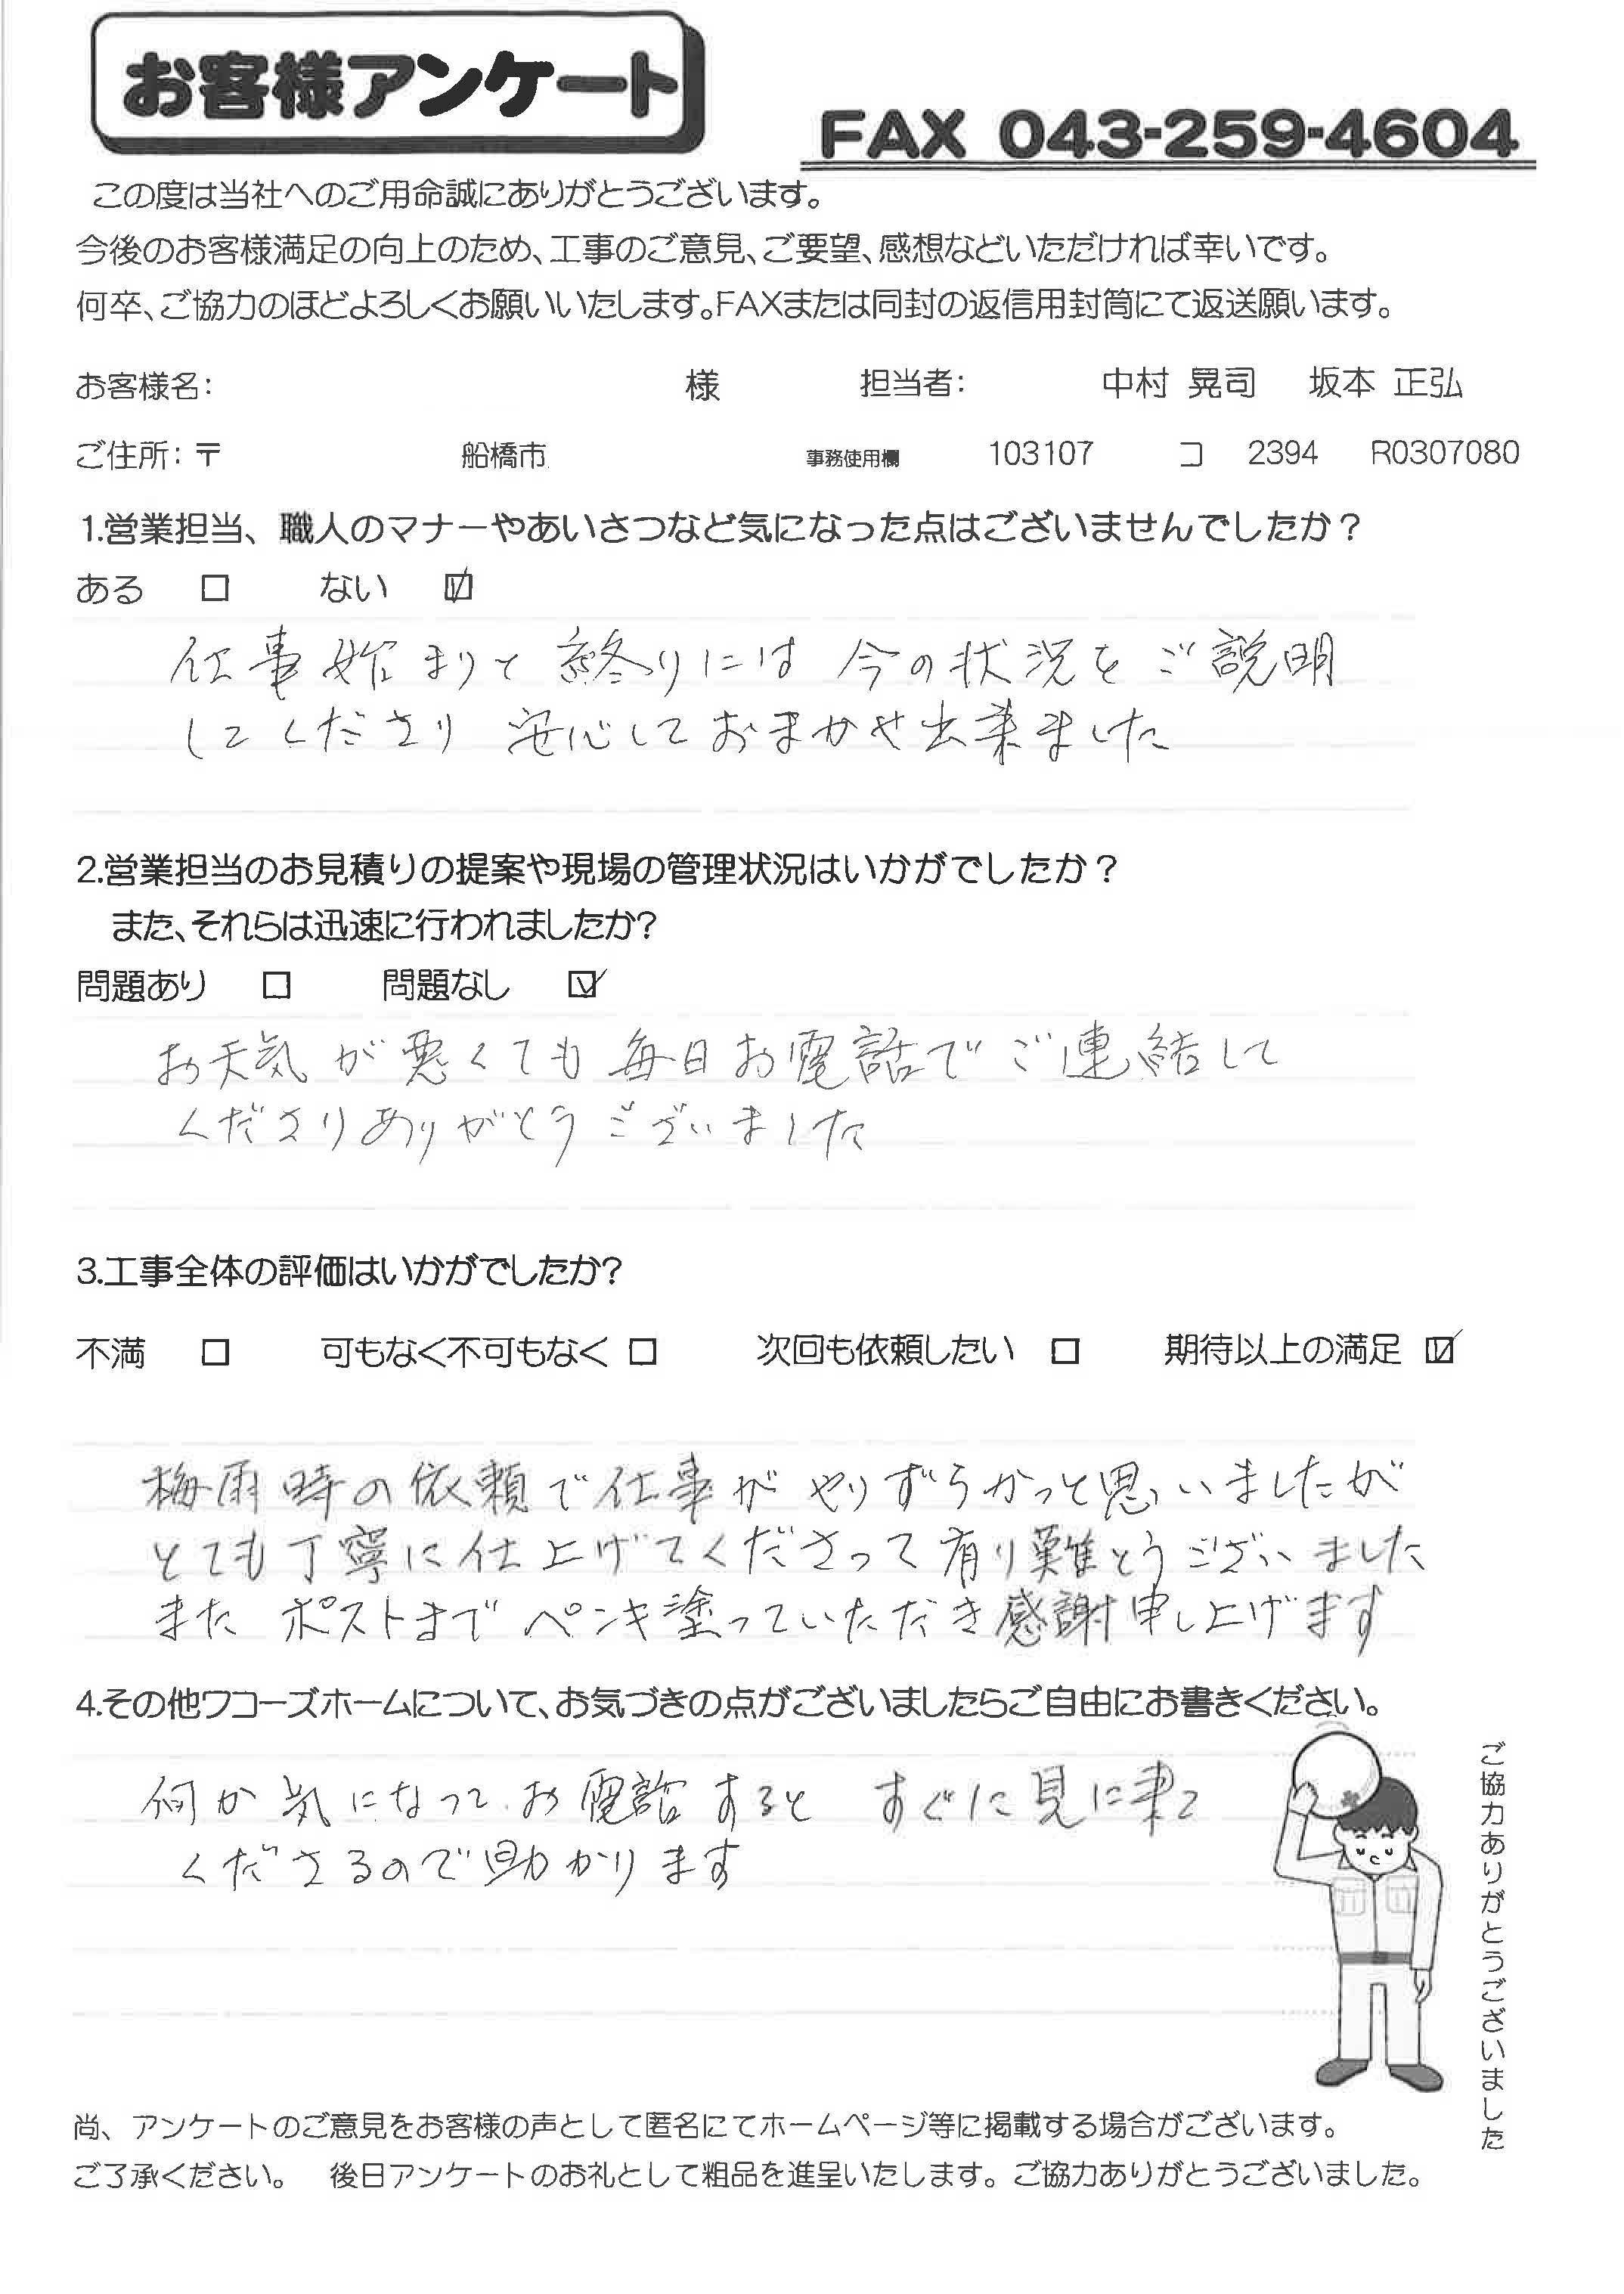 お客様アンケート
FAX 043-259-4604
この度は当社へのご用命誠にありがとうございます。
今後のお客様満足の向上のため、工事のご意見、ご要望、感想などいただければ幸いです。
何卒、ご協力のほどよろしくお願いいたします。FAXまたは同封の返信用封筒にて返送願います。
お客様名: 様 担当者: 中村 晃司 坂本 正弘
ご住所: 〒 船橋市 事務使用欄 103107 コ 2394 R0307080
1.営業担当、職人のマナーやあいさつなど気になった点はございませんでしたか？
ある □ ない ☑
仕事始まりと終りには今の状況をご説明
してくださり 安心しておまかせ出来ました
2.営業担当のお見積りの提案や現場の管理状況はいかがでしたか？
また、それらは迅速に行われましたか?
問題あり □ 問題なし ☑
お天気が悪くても毎日お電話でご連結して
くださりありがとうございました
3.工事全体の評価はいかがでしたか?
不満 □ 可もなく不可もなく □ 次回も依頼したい □ 期待以上の満足 ☑
梅雨時の依頼で仕事がやりずらかっと思いましたが
とても丁寧に仕上げてくださって有り難とうございました
また ポストまで ペンキ塗っていただき感謝申し上げます
4.その他ワコーズホームについて、お気づきの点がございましたらご自由にお書きください。
何か気になってお電話すると すぐに見に来て
くださるので助かります
ご協力ありがとうございました
尚、アンケートのご意見をお客様の声として匿名にてホームページ等に掲載する場合がございます。
ご了承ください。 後日アンケートのお礼として粗品を進呈いたします。ご協力ありがとうございました。